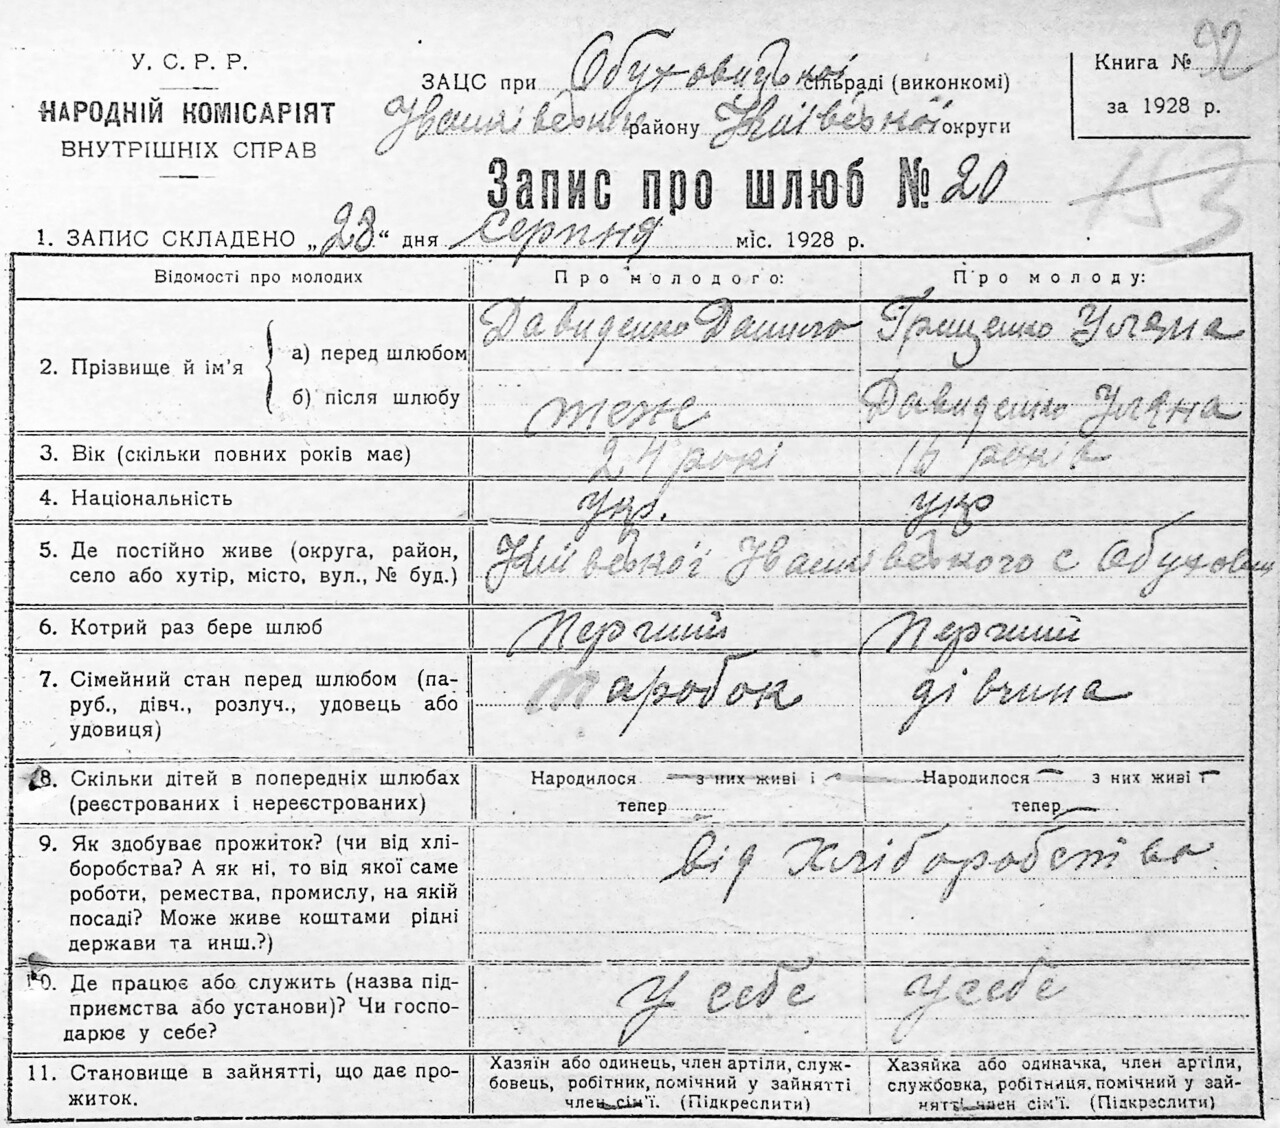 У. С. Р. Р.
НАРОДНІЙ КОМІСАРІЯТ
ВНУТРІШНІХ СПРАВ
ЗАЦС при Обуховицької сільраді (виконкомі)
Іванківськ району Київської округи
Книга № 92
за 1928 р.
Запис про шлюб № 20
153
1. ЗАПИС СКЛАДЕНО „28“ дня серпня міс. 1928 р.
Відомості про молодих Про молодого: Про молоду:
2. Прізвище й ім’я
а) перед шлюбом Давиденко Данило Грищенко Уляна
б) після шлюбу теж Давиденко Уляна
3. Вік (скільки повних років має) 24 рокі 16 років
4. Національність укр. укр
5. Де постійно живе (округа, район,
село або хутір, місто, вул., № буд.) Київської Іванківського с Обухович
6. Котрий раз бере шлюб Перчий Перчий
7. Сімейний стан перед шлюбом (па-
руб., дівч., розлуч., удовець або
удовиця) паробок дівчина
8. Скільки дітей в попередніх шлюбах
(реєстрованих і нереєстрованих)
Народилося — з них живі і — тепер
Народилося — з них живі — тепер —
9. Як здобуває прожиток? (чи від хлі-
боробства? А як ні, то від якої саме
роботи, ремества, промислу, на якій
посаді? Може живе коштами рідні
держави та инш.?)
від Хліборобства
10. Де працює або служить (назва під-
приємства або установи)? Чи госпо-
дарює у себе?
у себе у себе
11. Становище в зайнятті, що дає про-
житок.
Хазяїн або одинець, член артіли, служ-
бовець, робітник, помічний у зайнятті
член сім’ї. (Підкреслити)
Хазяйка або одиначка, член артіли,
службовка, робітниця, помічний у зай-
нятті член сім’ї. (Підкреслити)